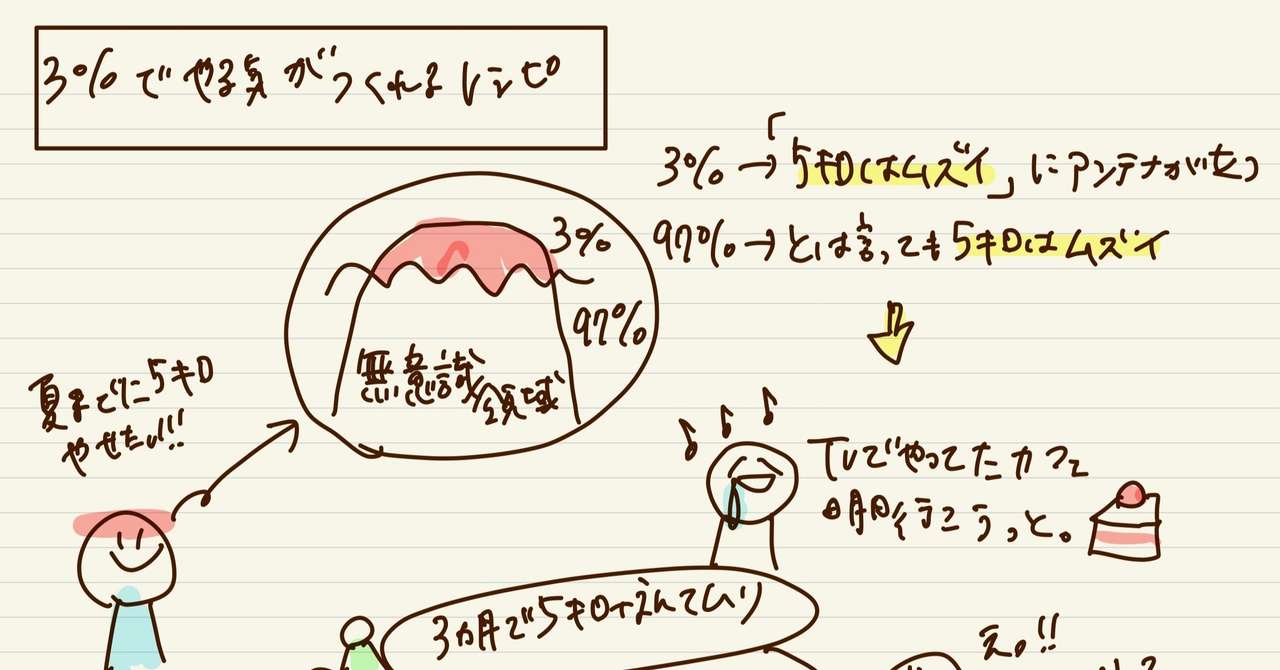 3%でやる気がつくれるレシピ
3%→「5キロはムズイ」にアンテナが立つ
3%
97%→とは言っても5キロはムズイ
97%
無意識領域
夏までに5キロ
やせたい!!
TVでやってたカフェ
明日行こうっと。
3ヵ月で5キロなんてムリ
え。!!